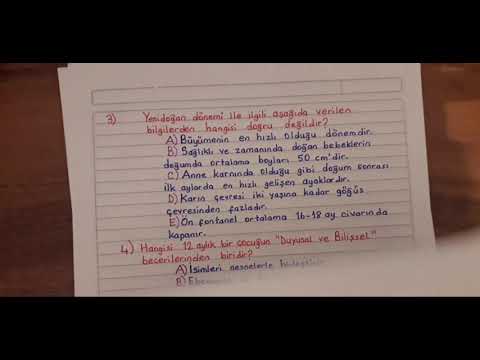 3) Yenidoğan dönemi ile ilgili aşağıda verilen
bilgilerden hangisi doğru değildir?
A) Büyümenin en hızlı olduğu dönemdir.
B) Sağlıklı ve zamanında doğan bebeklerin
doğumda ortalama boyları 50 cm'dir.
C) Anne karnında olduğu gibi doğum sonrası
ilk aylarda en hızlı gelişen ayaklardır.
D) Karın çevresi iki yaşına kadar göğüs
çevresinden fazladır.
E) Ön fontanel ortalama 16-18 ay civarında
kapanır.
4) Hangisi 12 aylık bir çocuğun "Duyusal ve Bilişsel"
becerilerinden biridir?
A) İsimleri nesnelerle
B)